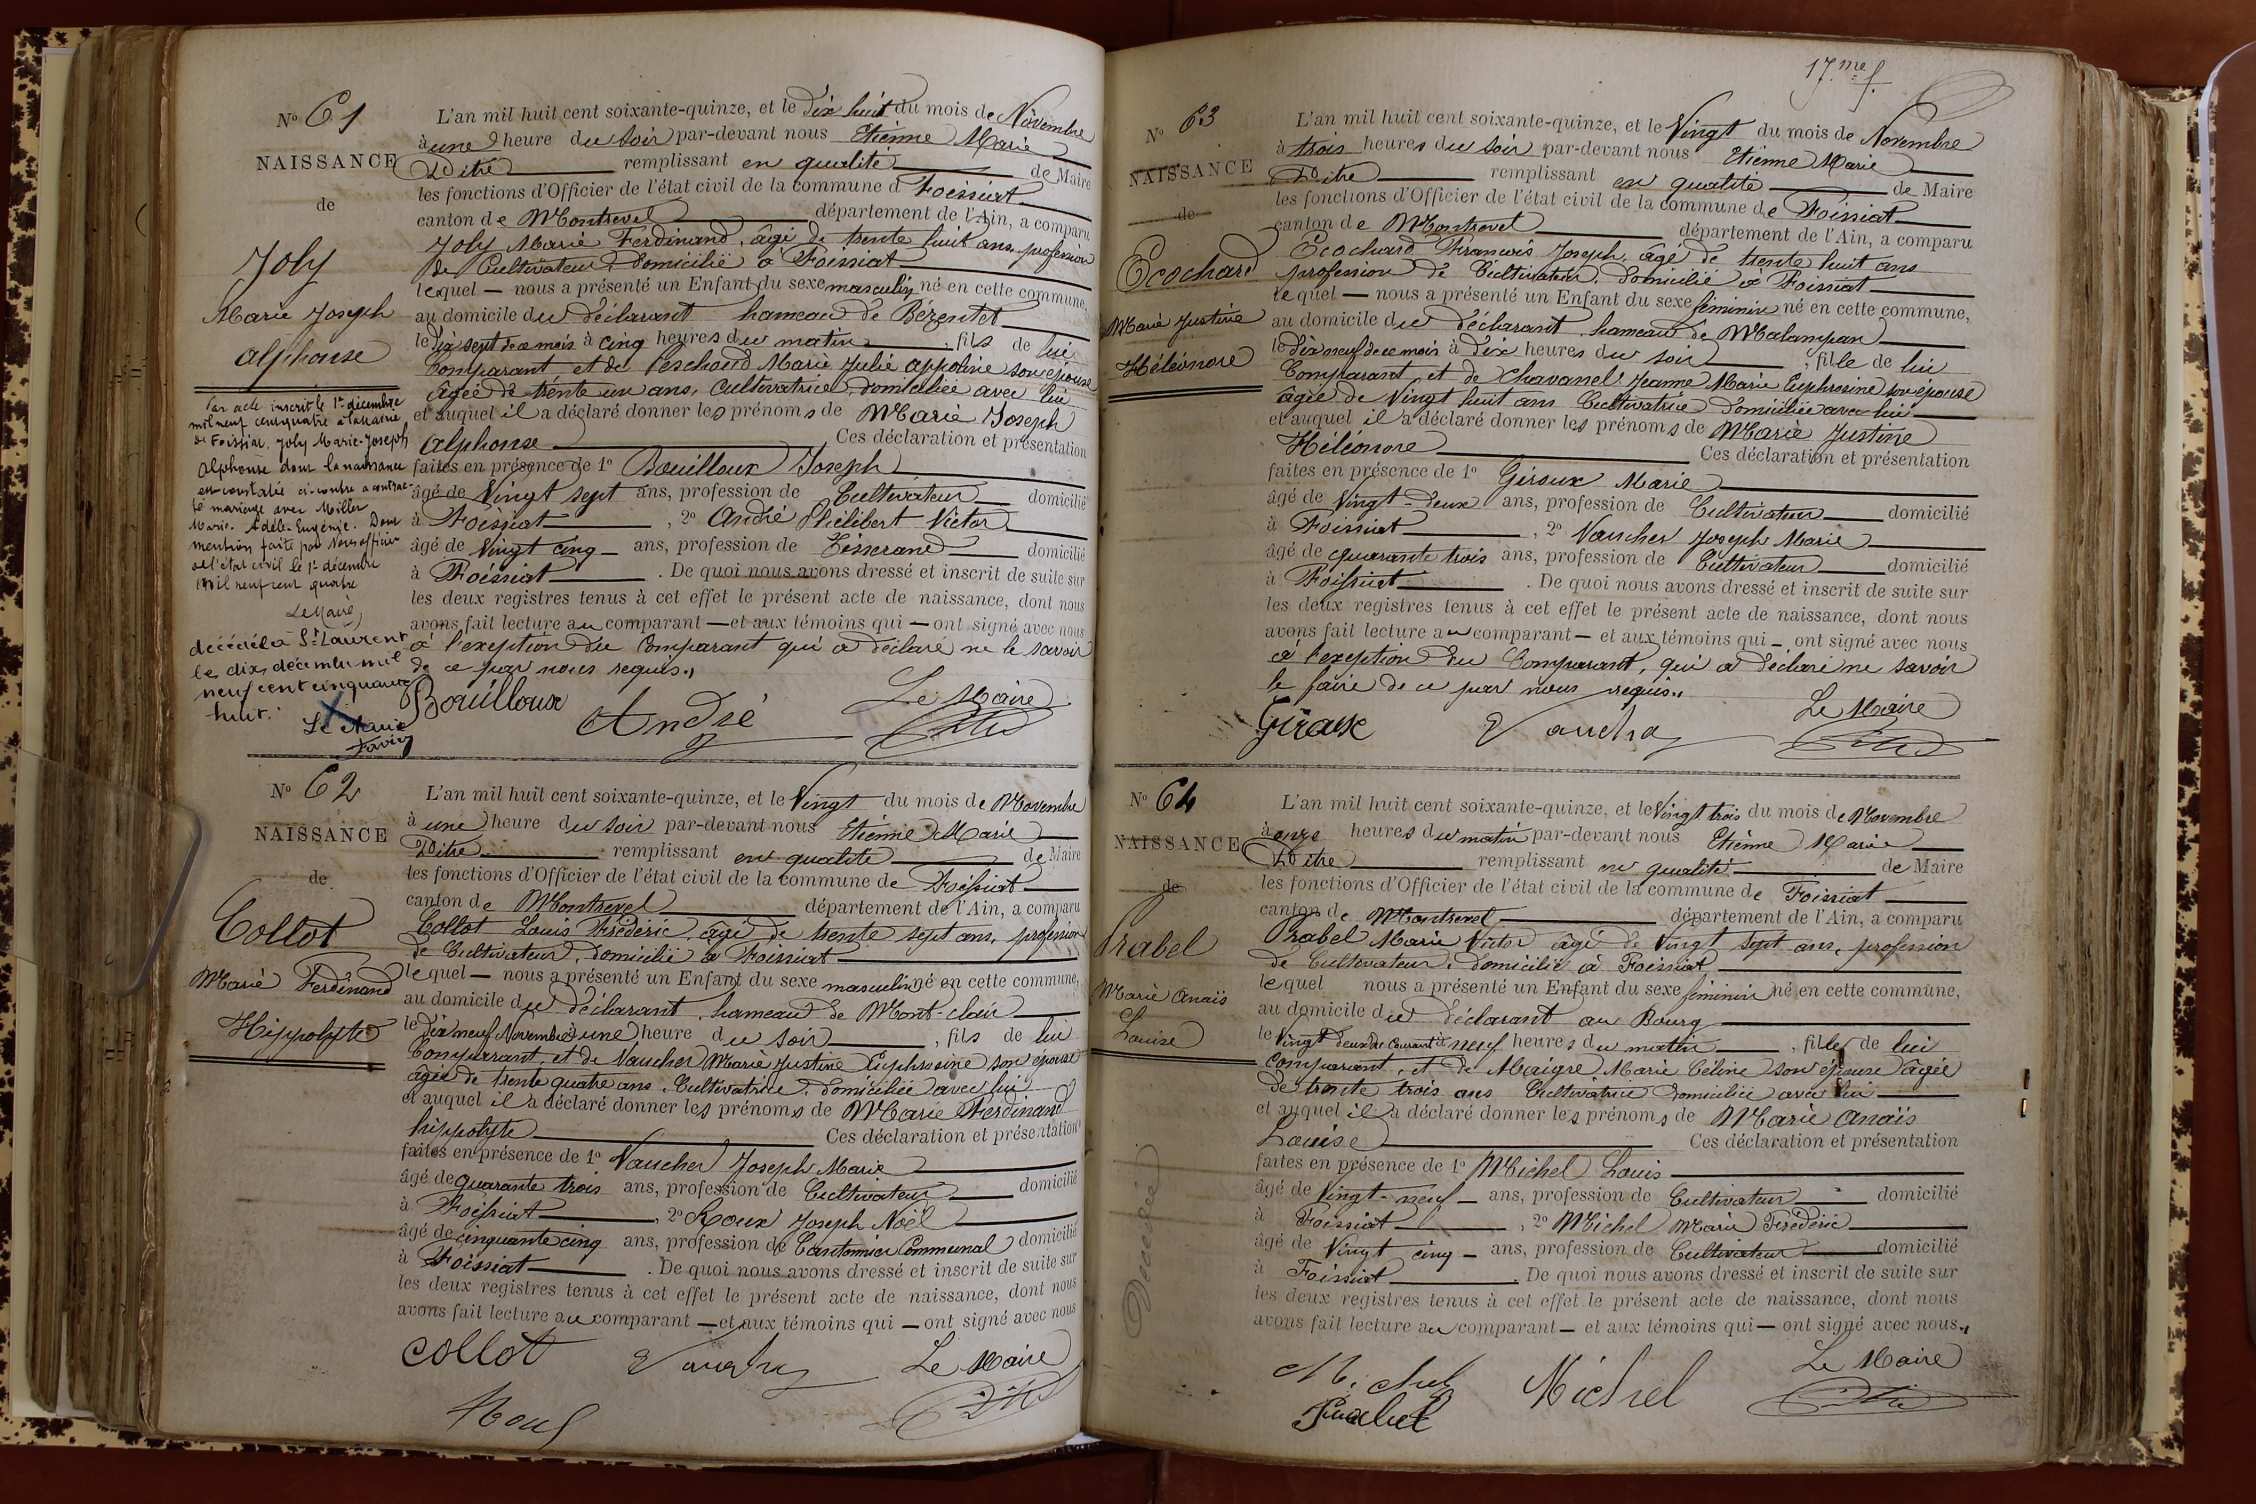 N° 61
NAISSANCE
de
Joly
Marie Joseph
Alphonse
Par acte inscrit le 1er décembre
mil neuf cent quatre à la Mairie
de Foissiat, Joly Marie-Joseph
Alphonse dont la naissance
est constatée ci-contre a contrac-
té mariage avec Millet
Marie-Adèle-Eugénie. Dont
mention faite par Nous officier
de l'état civil le 1er décembre
mil neuf cent quatre
Le Maire
décédé à St Laurent
le dix décembre mil
neuf cent cinquante
huit.
Le Maire
L'an mil huit cent soixante-quinze, et le Dix huit du mois de Novembre
à une heure du soir par-devant nous Etienne Marie
Pitre remplissant en qualité de Maire
les fonctions d'Officier de l'état civil de la commune d Foissiat
canton de Montrevel département de l'Ain, a comparu
Joly Marie Ferdinand, âgé de trente huit ans, profession
de Cultivateur, domicilié à Foissiat
lequel — nous a présenté un Enfant du sexe masculin né en cette commune,
au domicile du déclarant hameau de Bézentet
le dix sept de ce mois à cinq heures du matin, fils de lui
Comparant et de Peschard Marie Julie Appoline son épouse
âgée de trente un ans, Cultivatrice, domiciliée avec lui
et auquel il a déclaré donner les prénoms de Marie Joseph
Alphonse Ces déclaration et présentation
faites en présence de 1° Bouilloux Joseph
âgé de Vingt sept ans, profession de Cultivateur domicilié
à Foissiat, 2° André Philibert Victor
âgé de Vingt cinq ans, profession de Tisserand domicilié
à Foissiat. De quoi nous avons dressé et inscrit de suite sur
les deux registres tenus à cet effet le présent acte de naissance, dont nous
avons fait lecture au comparant — et aux témoins qui — ont signé avec nous
à l'exeption du Comparant qui a déclaré ne le savoir
de ce par nous requis.
Bouilloux André Le Maire
Pitre
N° 62
NAISSANCE
de
Collot
Marie Ferdinand
Hippolyte
L'an mil huit cent soixante-quinze, et le Vingt du mois de Novembre
à une heure du soir par-devant nous Etienne Marie
Pitre remplissant en qualité de Maire
les fonctions d'Officier de l'état civil de la commune de Foissiat
canton de Montrevel département de l'Ain, a comparu
Collot Louis Frédéric, âgé de trente sept ans, profession
de Cultivateur, domicilié à Foissiat
lequel — nous a présenté un Enfant du sexe masculin né en cette commune,
au domicile du déclarant, hameau de Mont-clair
le dix neuf Novembre à une heure du soir, fils de lui
Comparant et de Vaucher Marie Justine Euphrosine son épouse
âgée de trente quatre ans, Cultivatrice, domiciliée avec lui
et auquel il a déclaré donner les prénoms de Marie Ferdinand
hippolyte Ces déclaration et présentation
faites en présence de 1° Vaucher Joseph Marie
âgé de quarante trois ans, profession de Cultivateur domicilié
à Foissiat, 2° Roux Joseph Noël
âgé de cinquante cinq ans, profession de Cantonnier Communal domicilié
à Foissiat. De quoi nous avons dressé et inscrit de suite sur
les deux registres tenus à cet effet le présent acte de naissance, dont nous
avons fait lecture au comparant — et aux témoins qui — ont signé avec nous
Collot Vaucher Le Maire
Roux Pitre
17.me f.
N° 63
NAISSANCE
de
Ecochard
Marie Justine
Héléonore
L'an mil huit cent soixante-quinze, et le Vingt du mois de Novembre
à trois heures du soir par-devant nous Etienne Marie
Pitre remplissant en qualité de Maire
les fonctions d'Officier de l'état civil de la commune de Foissiat
canton de Montrevel département de l'Ain, a comparu
Ecochard François Joseph, âgé de trente huit ans
profession de Cultivateur, domicilié à Foissiat
lequel — nous a présenté un Enfant du sexe féminin né en cette commune,
au domicile du déclarant, hameau de Malampan
le Dix neuf de ce mois à Dix heures du soir, fille de lui
Comparant et de Chavanel Jeanne Marie Euphrosine son épouse
âgée de Vingt huit ans Cultivatrice domiciliée avec lui
et auquel il a déclaré donner les prénoms de Marie Justine
Héléonore Ces déclaration et présentation
faites en présence de 1° Giroux Marie
âgé de Vingt-deux ans, profession de Cultivateur domicilié
à Foissiat, 2° Vaucher Joseph Marie
âgé de quarante trois ans, profession de Cultivateur domicilié
à Foissiat. De quoi nous avons dressé et inscrit de suite sur
les deux registres tenus à cet effet le présent acte de naissance, dont nous
avons fait lecture au comparant — et aux témoins qui — ont signé avec nous
à l'exeption du Comparant, qui a déclaré ne savoir
le faire de ce par nous requis.
Giroux Vaucher Le Maire
Pitre
N° 64
NAISSANCE
de
Prabel
Marie Anaïs
Louise
Décédée
L'an mil huit cent soixante-quinze, et le Vingt trois du mois de Novembre
à onze heures du matin par-devant nous Etienne Marie
Pitre remplissant en qualité de Maire
les fonctions d'Officier de l'état civil de la commune de Foissiat
canton de Montrevel département de l'Ain, a comparu
Prabel Marie Victor âgé de Vingt sept ans, profession
de Cultivateur, domicilié à Foissiat
lequel nous a présenté un Enfant du sexe féminin né en cette commune,
au domicile du déclarant au Bourg
le Vingt deux du courant à neuf heures du matin, fille de lui
comparant, et de Maigre Marie Céline son épouse âgée
de trente trois ans Cultivatrice domiciliée avec lui
et auquel il a déclaré donner les prénoms de Marie Anaïs
Louise Ces déclaration et présentation
faites en présence de 1° Michel Louis
âgé de Vingt-neuf ans, profession de Cultivateur domicilié
à Foissiat, 2° Michel Marie Frédéric
âgé de Vingt cinq ans, profession de Cultivateur domicilié
à Foissiat. De quoi nous avons dressé et inscrit de suite sur
les deux registres tenus à cet effet le présent acte de naissance, dont nous
avons fait lecture au comparant — et aux témoins qui — ont signé avec nous.
Michel Michel Le Maire
Prabel Pitre